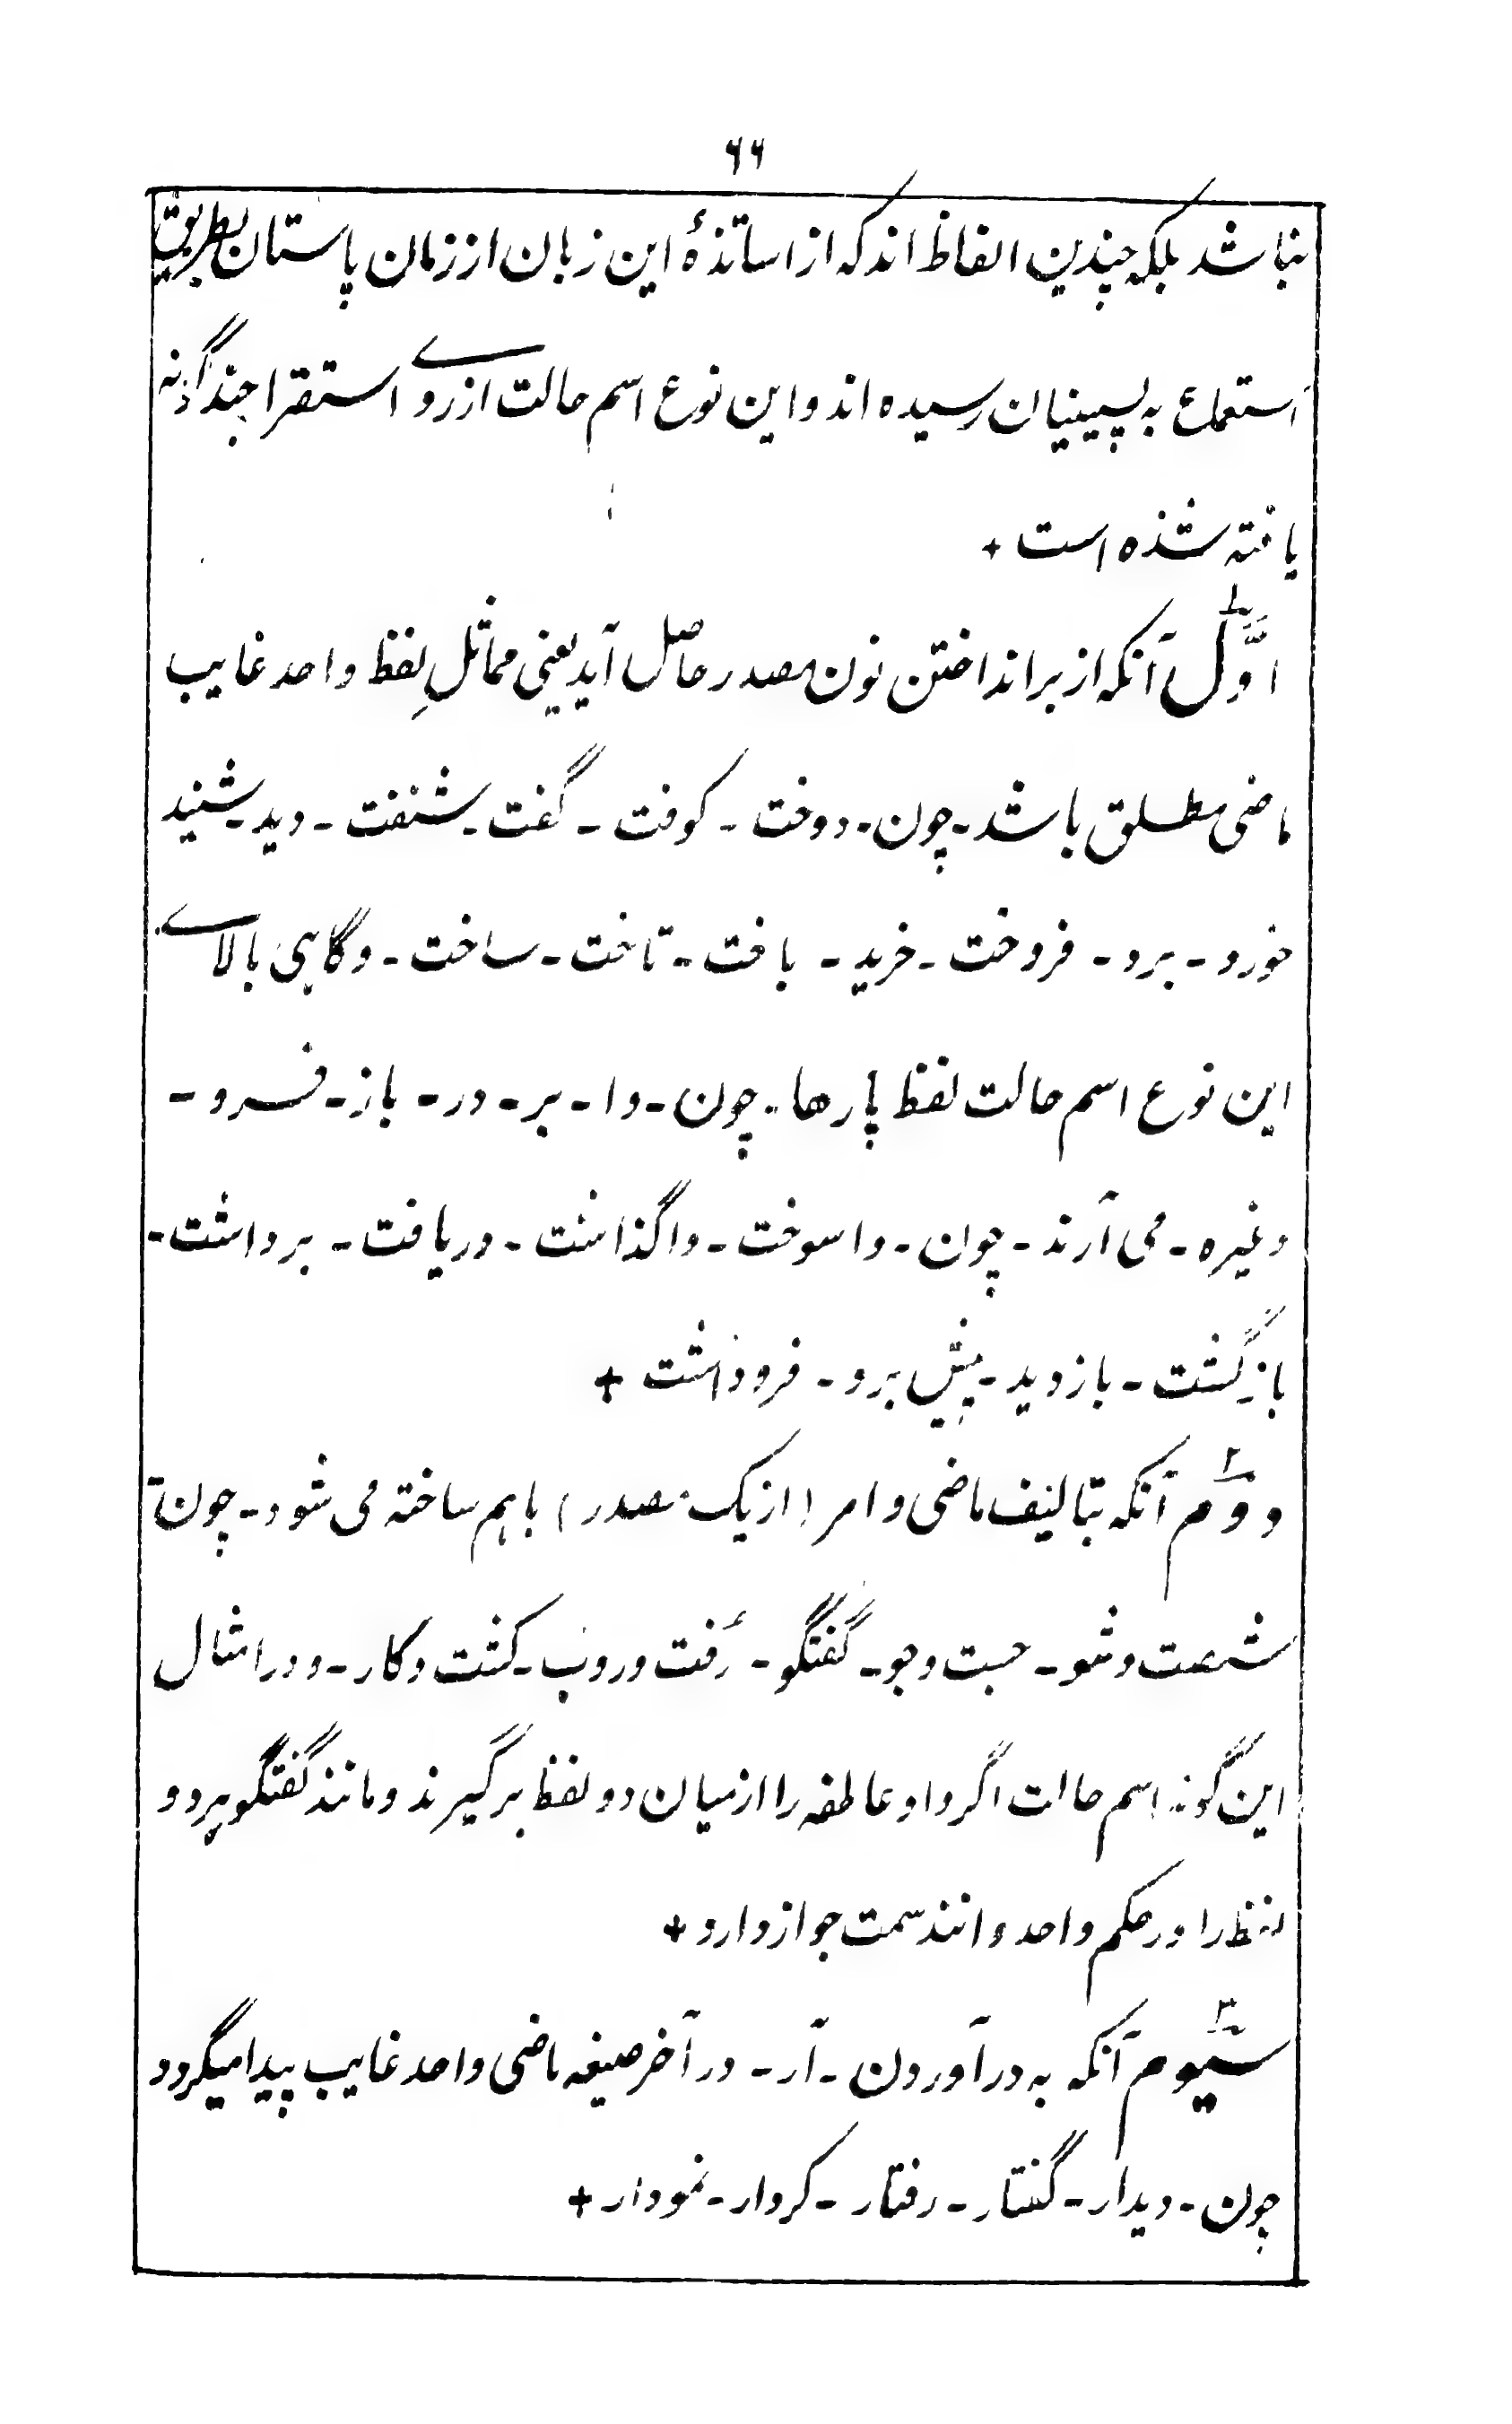 ۶۶
نباشد بلکہ چندین الفاظ اند کہ از اساتذۂ این زبان از زمان پاستان بطریق
استماع بہ پسینیان رسیدہ اند و این نوع اسم حالت از روے استقرا چند گونہ
یافتہ شدہ است +
اوّل آنکہ از بر انداختن نون مصدر حاصل آید یعنی مماثلِ لفظ واحد غایب
ماضی مطلق باشد - چون - دوخت - کوفت - گفت - شنفت - دید - شنید
خورد - برد - فروخت - خرید - بافت - تاخت - ساخت - و گاہی بالاے
این نوع اسم حالت لفظ پارها - چون - وا - بر - در - باز - فرو -
وغیرہ - می آرند - چون - واسوخت - واگذاشت - دریافت - برداشت -
بازگشت - بازدید - پیش برد - فروداشت +
دوّم آنکہ بتالیف ماضی و امر (از یک مصدر) باہم ساختہ می شود - چون
شست و شو - جست و جو - گفتگو - رُفت و روب - کشت و کار - و در امثال
این گونہ اسم حالت اگر واو عاطفہ را از میان دو لفظ برگیرند و مانند گفتگو ہر دو
لفظ را در حکم واحد دانند سمت جواز دارد +
سیّوم آنکہ بہ در آوردن - آر - در آخر صیغہ ماضی واحد غایب پیدا میگردد
چون - دیدار - گفتار - رفتار - کردار - نمودار +